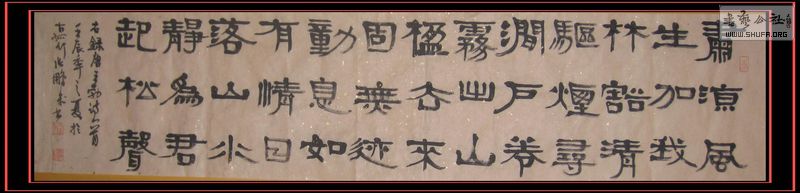 肅涼風
生加我
林豁清
驅煙尋
澗戶卷
霧出山
楹去來
固無迹
動息如
有情日
落山水
靜為君
起松聲
右錄唐王勃詩一首
壬辰年之夏於
書藝公社
WWW.SHUFA.ORG